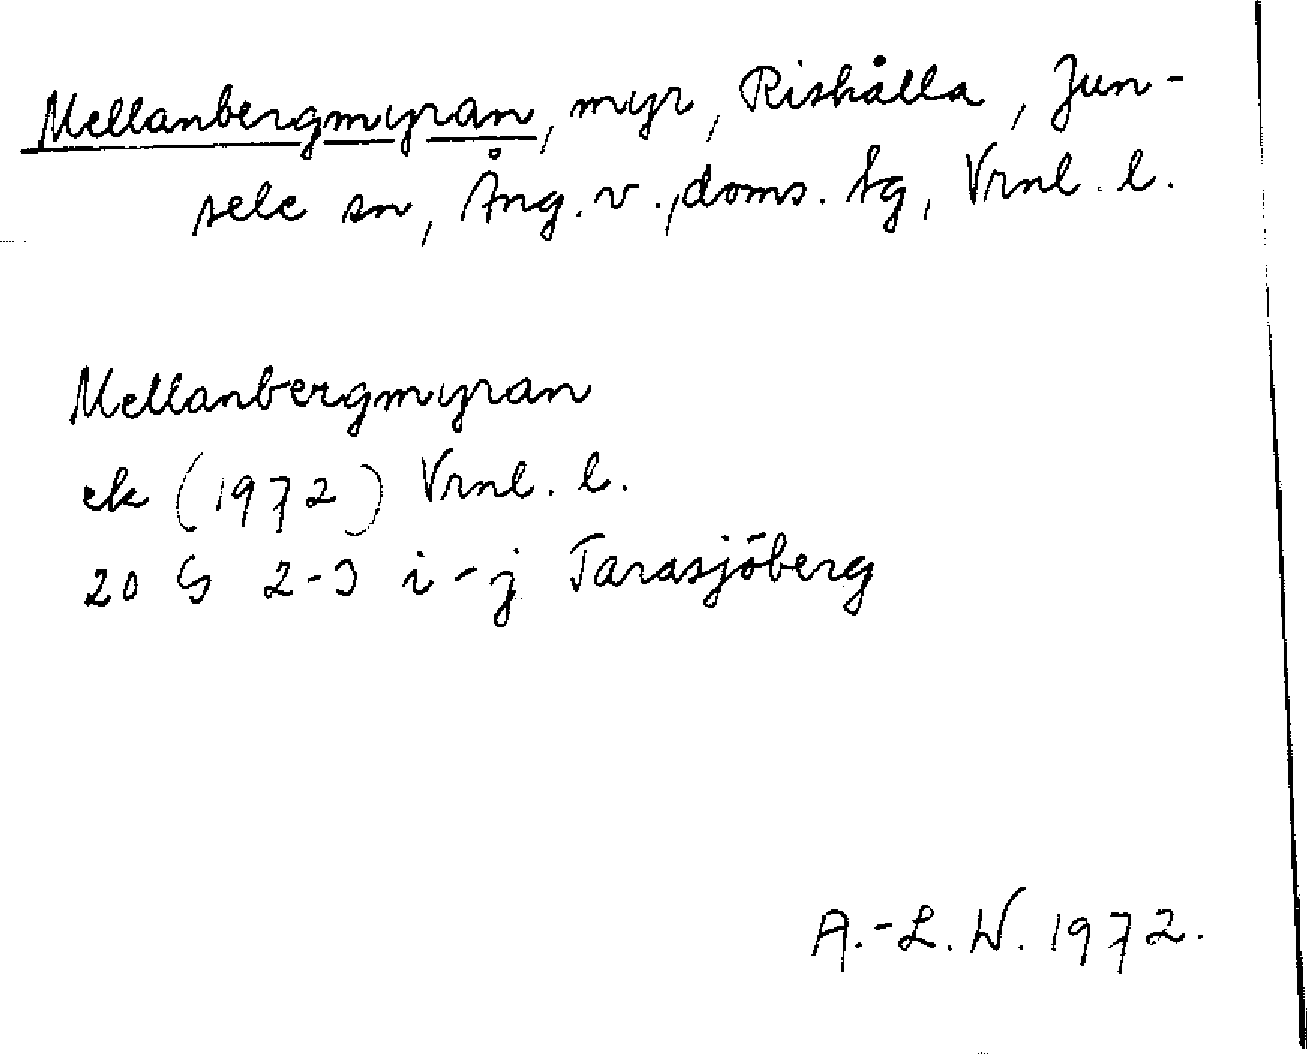 Mellanbergmyran, myr, Riskålla, Jun-
sele sn, Ång. v., doms. tg, Vrnl. l.
Mellanbergmyran
ek (1972) Vrnl. l.
20 G 2-3 i-j Tarasjöberg
A.-L. W. 1972.